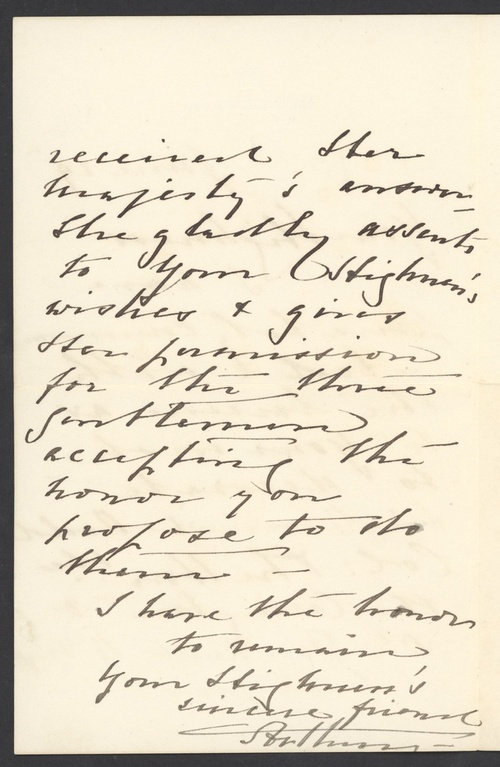 received Her
Majesty's answer
She gladly assents
to Your Highness's
wishes & gives
Her permission
for the three
gentlemen
accepting the
honor you
propose to do
them —
I have the honor
to remain
Your Highness's
sincere friend